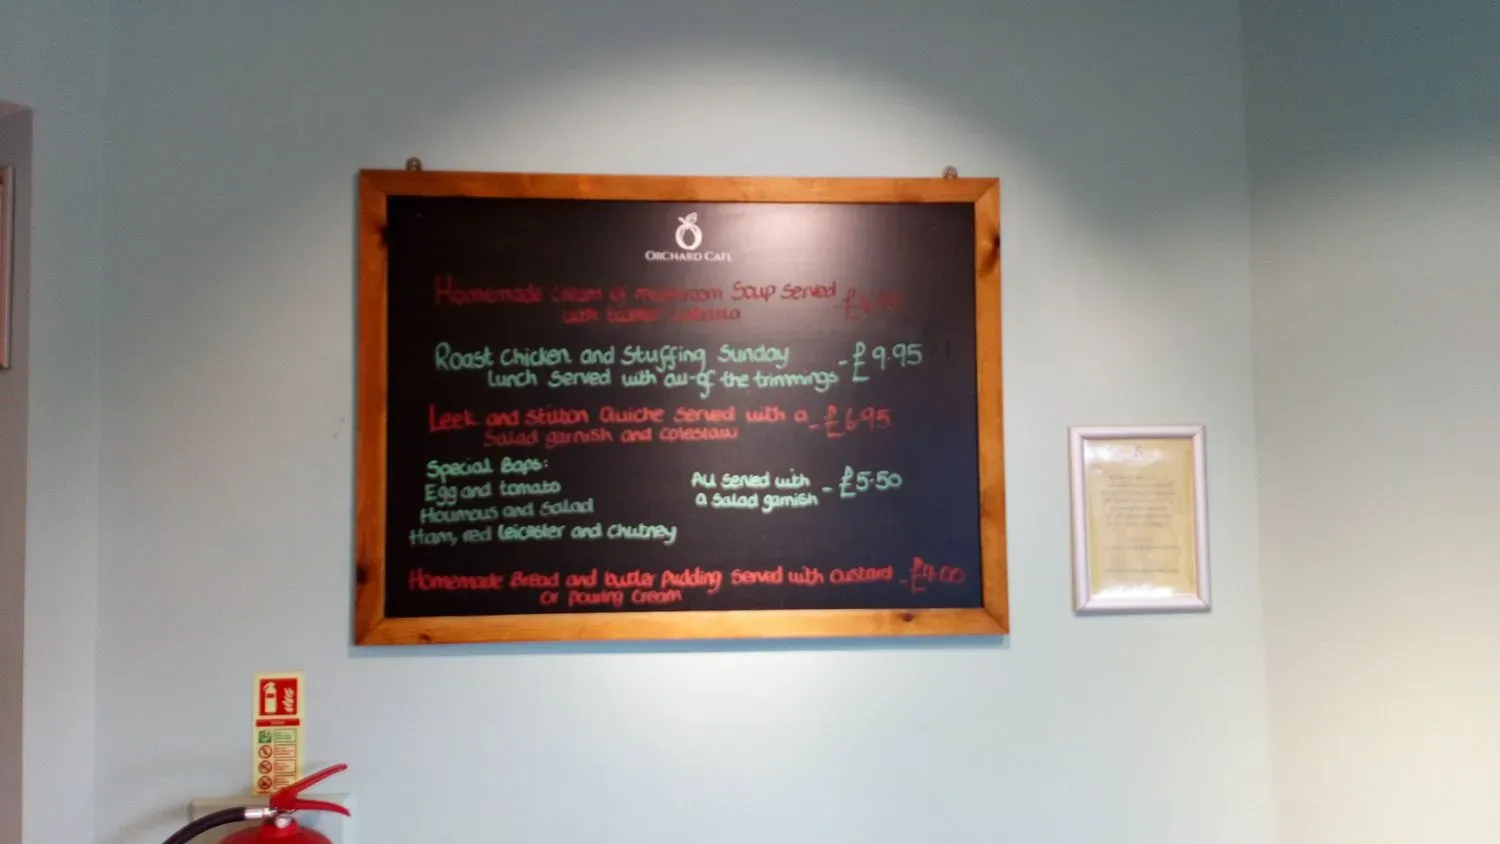 ORCHARD CAFE
Homemade cream of mushroom Soup Served
with
Roast Chicken and Stuffing Sunday - £9.95
Lunch Served with all of the trimmings
Leek and Stilton Quiche Served with a - £6.95
Salad garnish and coleslaw
Special Baps:
Egg and tomato
Houmous and Salad
Ham, red Leicester and Chutney
All Served with - £5.50
a Salad garnish
Homemade Bread and butter Pudding Served with Custard - £4.00
or Pouring Cream